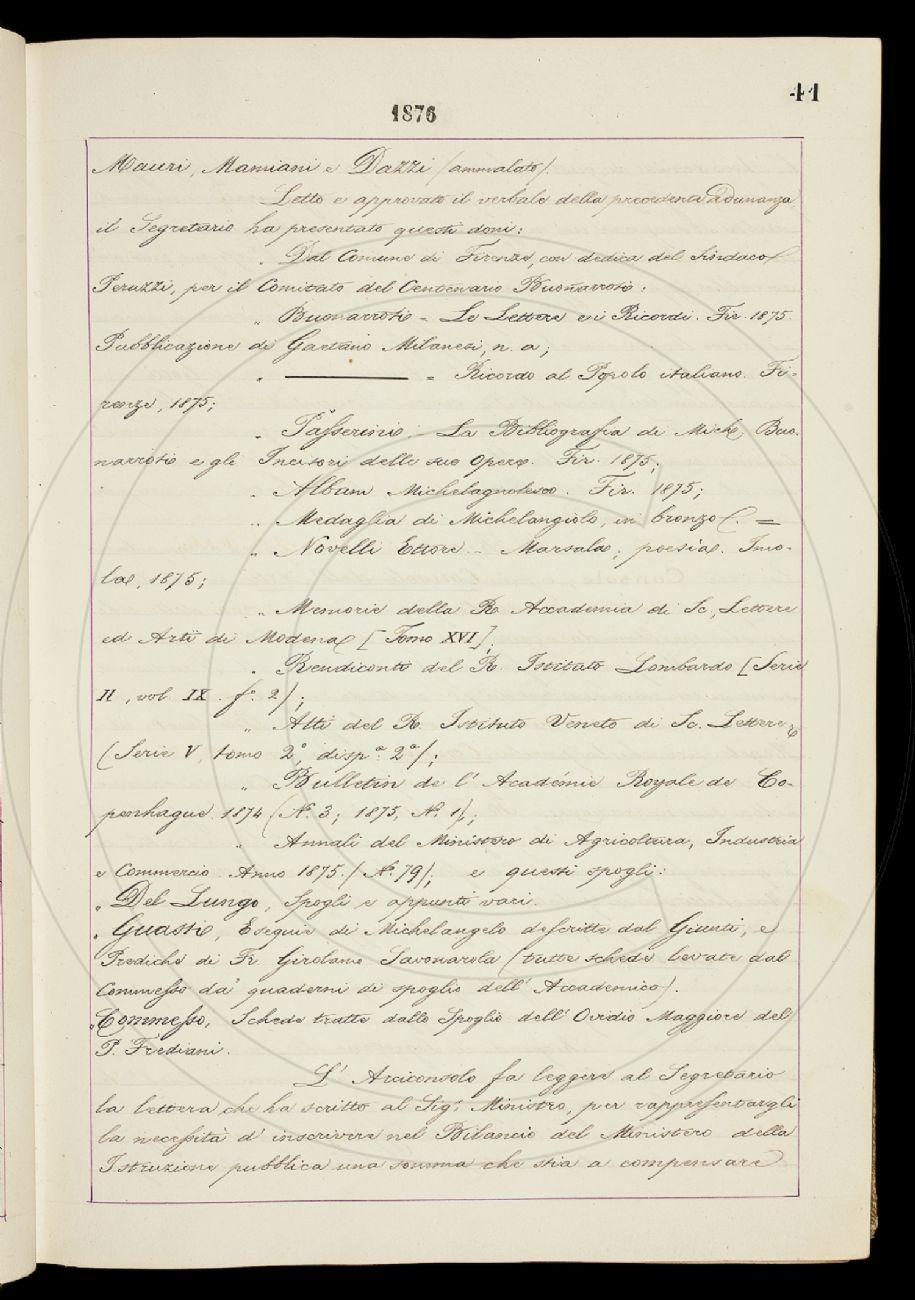 41
1876
Mauri, Mamiani e Dazzi (ammalato).
Letto e approvato il verbale della precedente Adunanza,
il Segretario ha presentato questi doni:
„ Dal Comune di Firenze, con dedica del Sindaco
Peruzzi, per il Comitato del Centenario Buonarroti:
„ Buonarroti - Le Lettere e i Ricordi. Fir. 1875.
Pubblicazione di Gaetano Milanesi, n. a;
„ ——— = Ricordo al Popolo italiano. Fi-
renze, 1875;
„ Passerini. - La Bibliografia di Mich. Buo-
narroti e gli Incisori delle sue Opere. Fir. 1875;
„ Album Michelagnolesco. Fir. 1875;
„ Medaglia di Michelangiolo, in bronzo. =
„ Novelli Ettore - Marsala; poesia. Imo-
la, 1875;
„ Memorie della R. Accademia di Sc, Lettere
ed Arti di Modena [Tomo XVI];
„ Rendiconto del R. Istituto Lombardo [Serie
II, vol. IX. f.º 2);
„ Atti del R. Istituto Veneto di Sc. Lettere &
(Serie V, tomo 2º, dispª 2ª);
„ Bulletin de l' Académie Royale de Co-
penhague. 1874 (N. 3; 1875, N. 1);
„ Annali del Ministero di Agricoltura, Industria
e Commercio. Anno 1875. (N. 79); e questi spogli:
„ Del Lungo, Spogli e appunti vari.
„ Guasti, Esequie di Michelangelo descritte dal Giunti, e
Prediche di Fr. Girolamo Savonarola (tutte schede levate dal
Commesso da' quaderni di spoglio dell' Accademico).
„ Commesso, Schede tratte dallo Spoglio dell' Ovidio Maggiore del
P. Frediani.
L' Arciconsolo fa leggere al Segretario
la lettera che ha scritto al Sigr. Ministro, per rappresentargli
la necessità d' inscrivere nel Bilancio del Ministero della
Istruzione pubblica una somma che stia a compensare